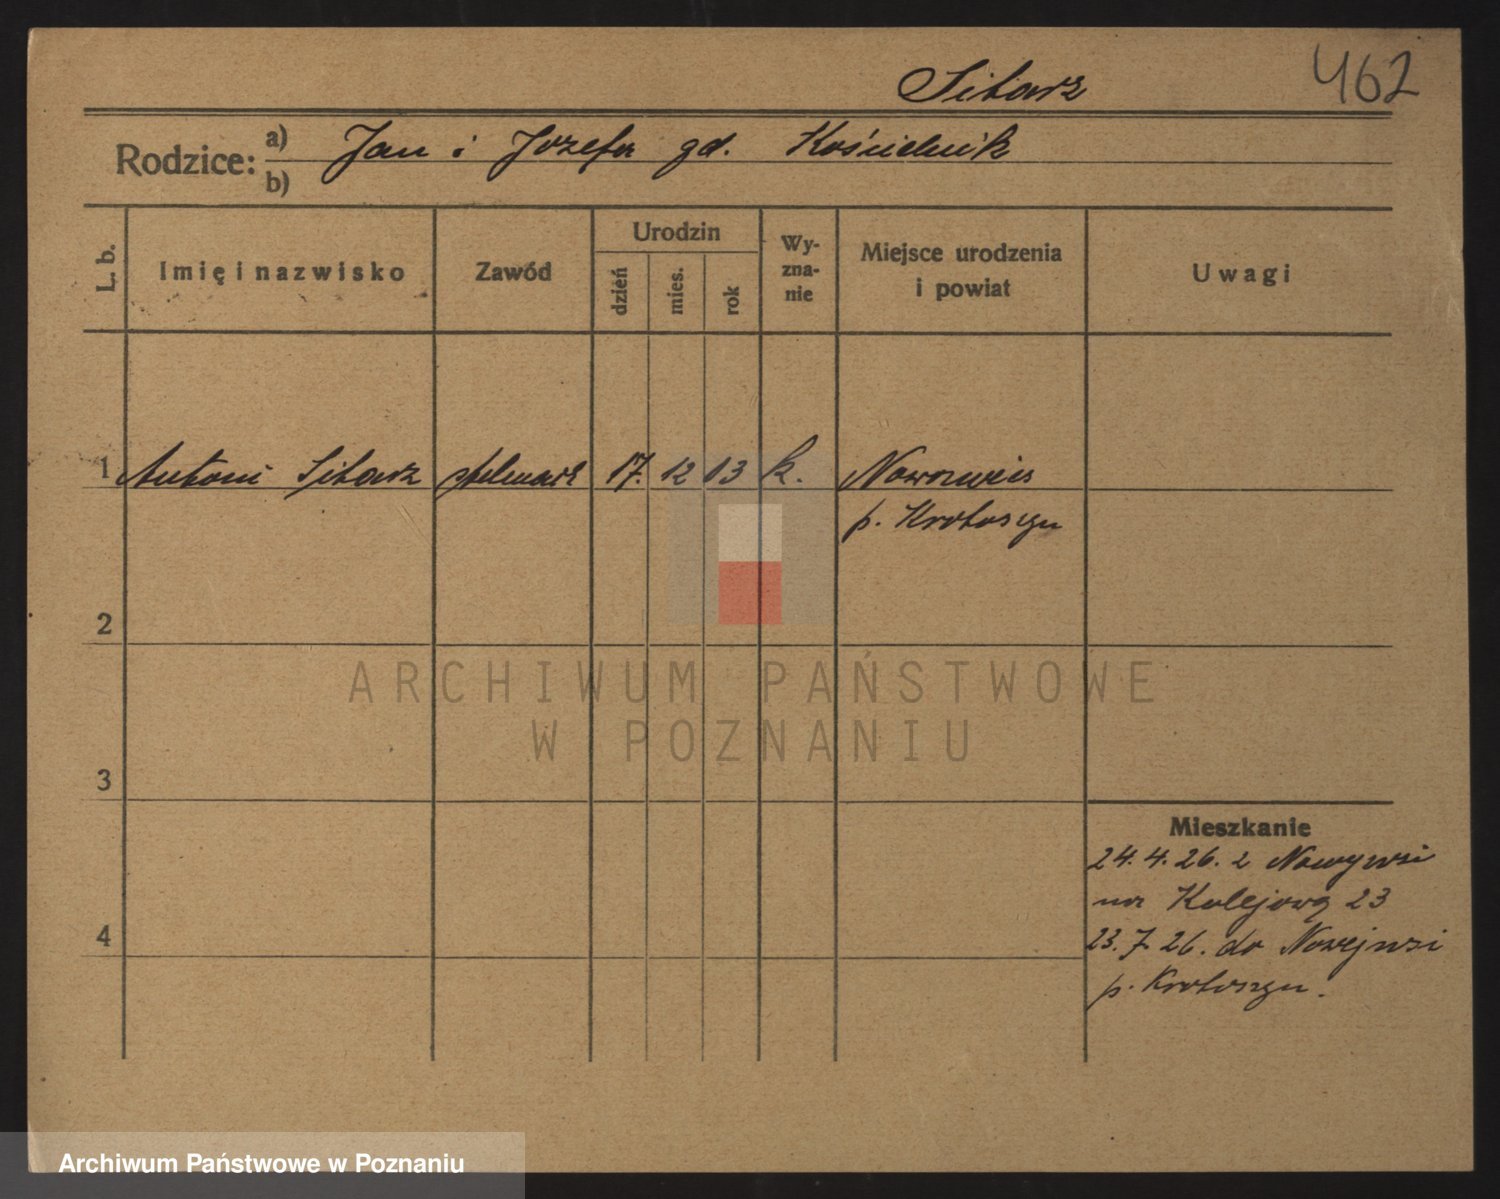 Sitarz 462
Rodzice: a) Jan i Jozefa gd. Kościelnik
b)
L. b. Imię i nazwisko Zawód Urodzin dzień mies. rok Wy-zna-nie Miejsce urodzenia i powiat Uwagi
1 Antoni Sitarz stelmach 17. 12 03 k. Nowawieś
p. Krotoszyn
2
ARCHIWUM PAŃSTWOWE
W POZNANIU
3
Mieszkanie
24. 4. 26. z Nowejwsi
na Kolejową 23
4
23. 7. 26. do Nowejwsi
p. Krotoszyn.
Archiwum Państwowe w Poznaniu